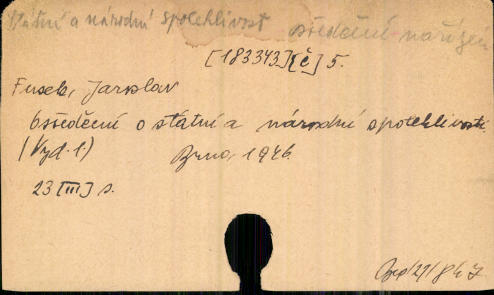 Státní a národní spolehlivost osvědčení nařízen
[183343][č] 5.
Fusek, Jaroslav
Osvědčení o státní a národní spolehlivosti
(Vyd. 1) Brno, 1946.
23 [III] s.